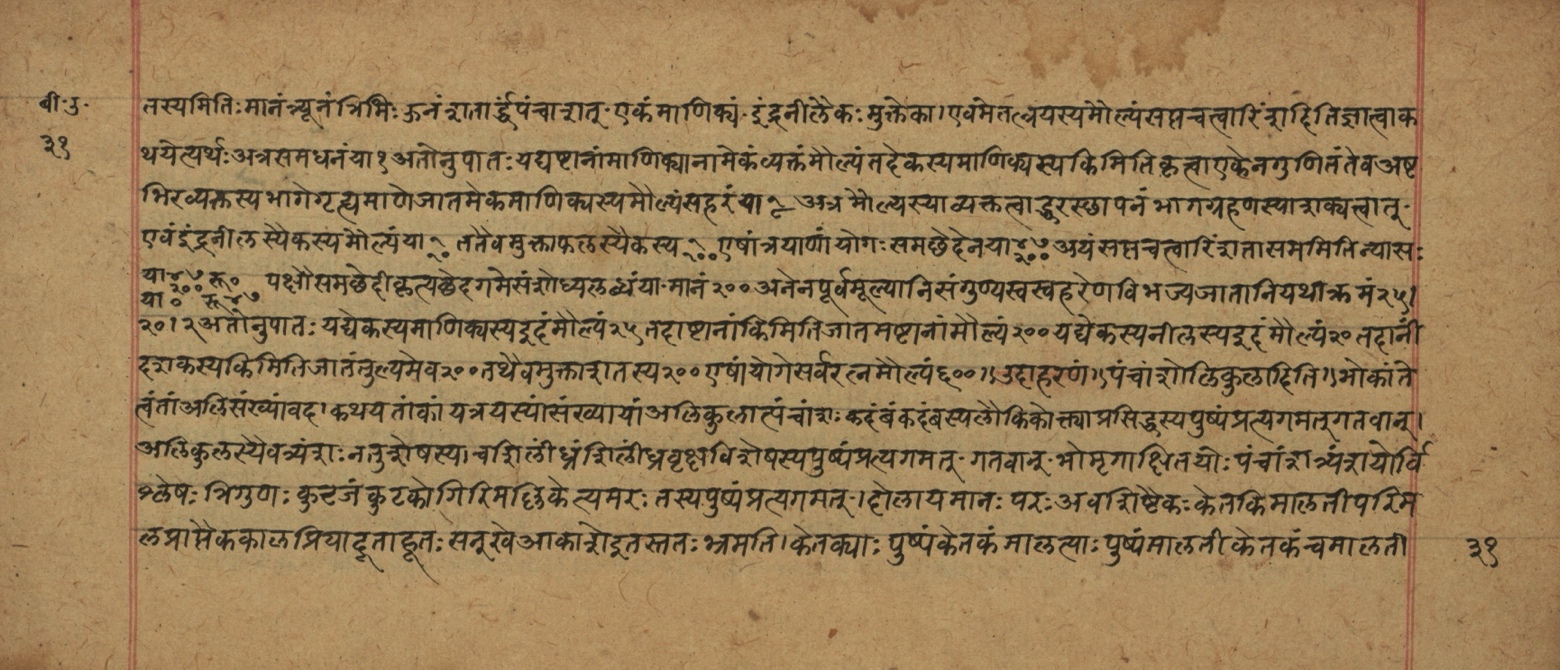 बी॰उ॰
३१
तस्यमितिः मानंन्यूनंत्रिभिः ऊनंशतार्द्धंपंचाशत् एकंमाणिक्यं इंद्रनीलैकः मुक्तैका। एवमेतत्त्रयस्यमौल्यंसप्तचत्वारिंशदितिज्ञात्वाक
थयेत्यर्थः अत्रसमधनंया१ अतोनुपातः यद्यष्टानांमाणिक्यानामेकंव्यक्तंमौल्यंतदैकस्यमाणिक्यस्यकिमितिकृत्वाएकेनगुणितंतेव अष्ट
भिरव्यक्तस्यभागेगृह्यमाणेजातमेकमाणिक्यस्यमौल्यंसहरंया १/८ अत्रमौल्यस्याव्यक्तत्वाद्धरस्छापनंभागग्रहणस्याशक्यत्वात्
एवंइंद्रनीलस्यैकस्यमौल्यंया १/१० ततैवमुक्ताफलस्यैकस्य १/१०० एषांत्रयाणांयोगः समछेदेनया ४७/२०० अयंसप्तचत्वारिंशतासममितिन्यासः
या ४७/२०० रू० या० रू४७ पक्षौसमछेदीकृत्यछेदगमेसंशोध्यलब्धंया-मानं२०० अनेनपूर्वमूल्यानिसंगुण्यस्वस्वहरेणविभज्यजातानियथाक्रमं२५।
२०।२ अतोनुपातः यद्येकस्यमाणिक्यस्यइदंमौल्यं२५तदाष्टानांकिमितिजातमष्टानांमौल्यं२०० यद्येकस्यनीलस्यइदंमौल्यं२० तदानीं
दशकस्यकिमितिजातंतुल्यमेव२०० तथैवमुक्ताशतस्य२०० एषांयोगेसर्वरत्नमौल्यं६००।।उदाहरणं।।पंचांशोलिकुलादिति।।भोकांते
त्वंतांअलिसंख्यांवद। कथयतांकांयत्रयस्यांसंख्यायांअलिकुलात्पंचांशः कदंबंकदंबस्यलौकिकोक्त्याप्रसिद्धस्यपुष्पंप्रत्यगमत्गतवान्।
अलिकुलस्यैवत्र्यंशः नतुशेषस्य।चशिलींध्रंशिलींध्रवृक्षविशेषस्यपुष्पंप्रत्यगमत् गतवान् भोमृगाक्षितयोः पंचांशत्र्यंशयोर्वि
श्लेषः त्रिगुणः कुटजंकुटकोगिरिमल्लिकेत्यमरः तस्यपुष्पंप्रत्यगमत्।दोलायमानः परः अवशिष्टैकः केतकिमालतीपरिम
लप्राप्तैककालप्रियादूताहूतः सन्खेआकाशेइतस्ततः भ्रमति।केतक्याः पुष्पंकेतकंमालत्याः पुष्पंमालतीकेतकंचमालती
३१